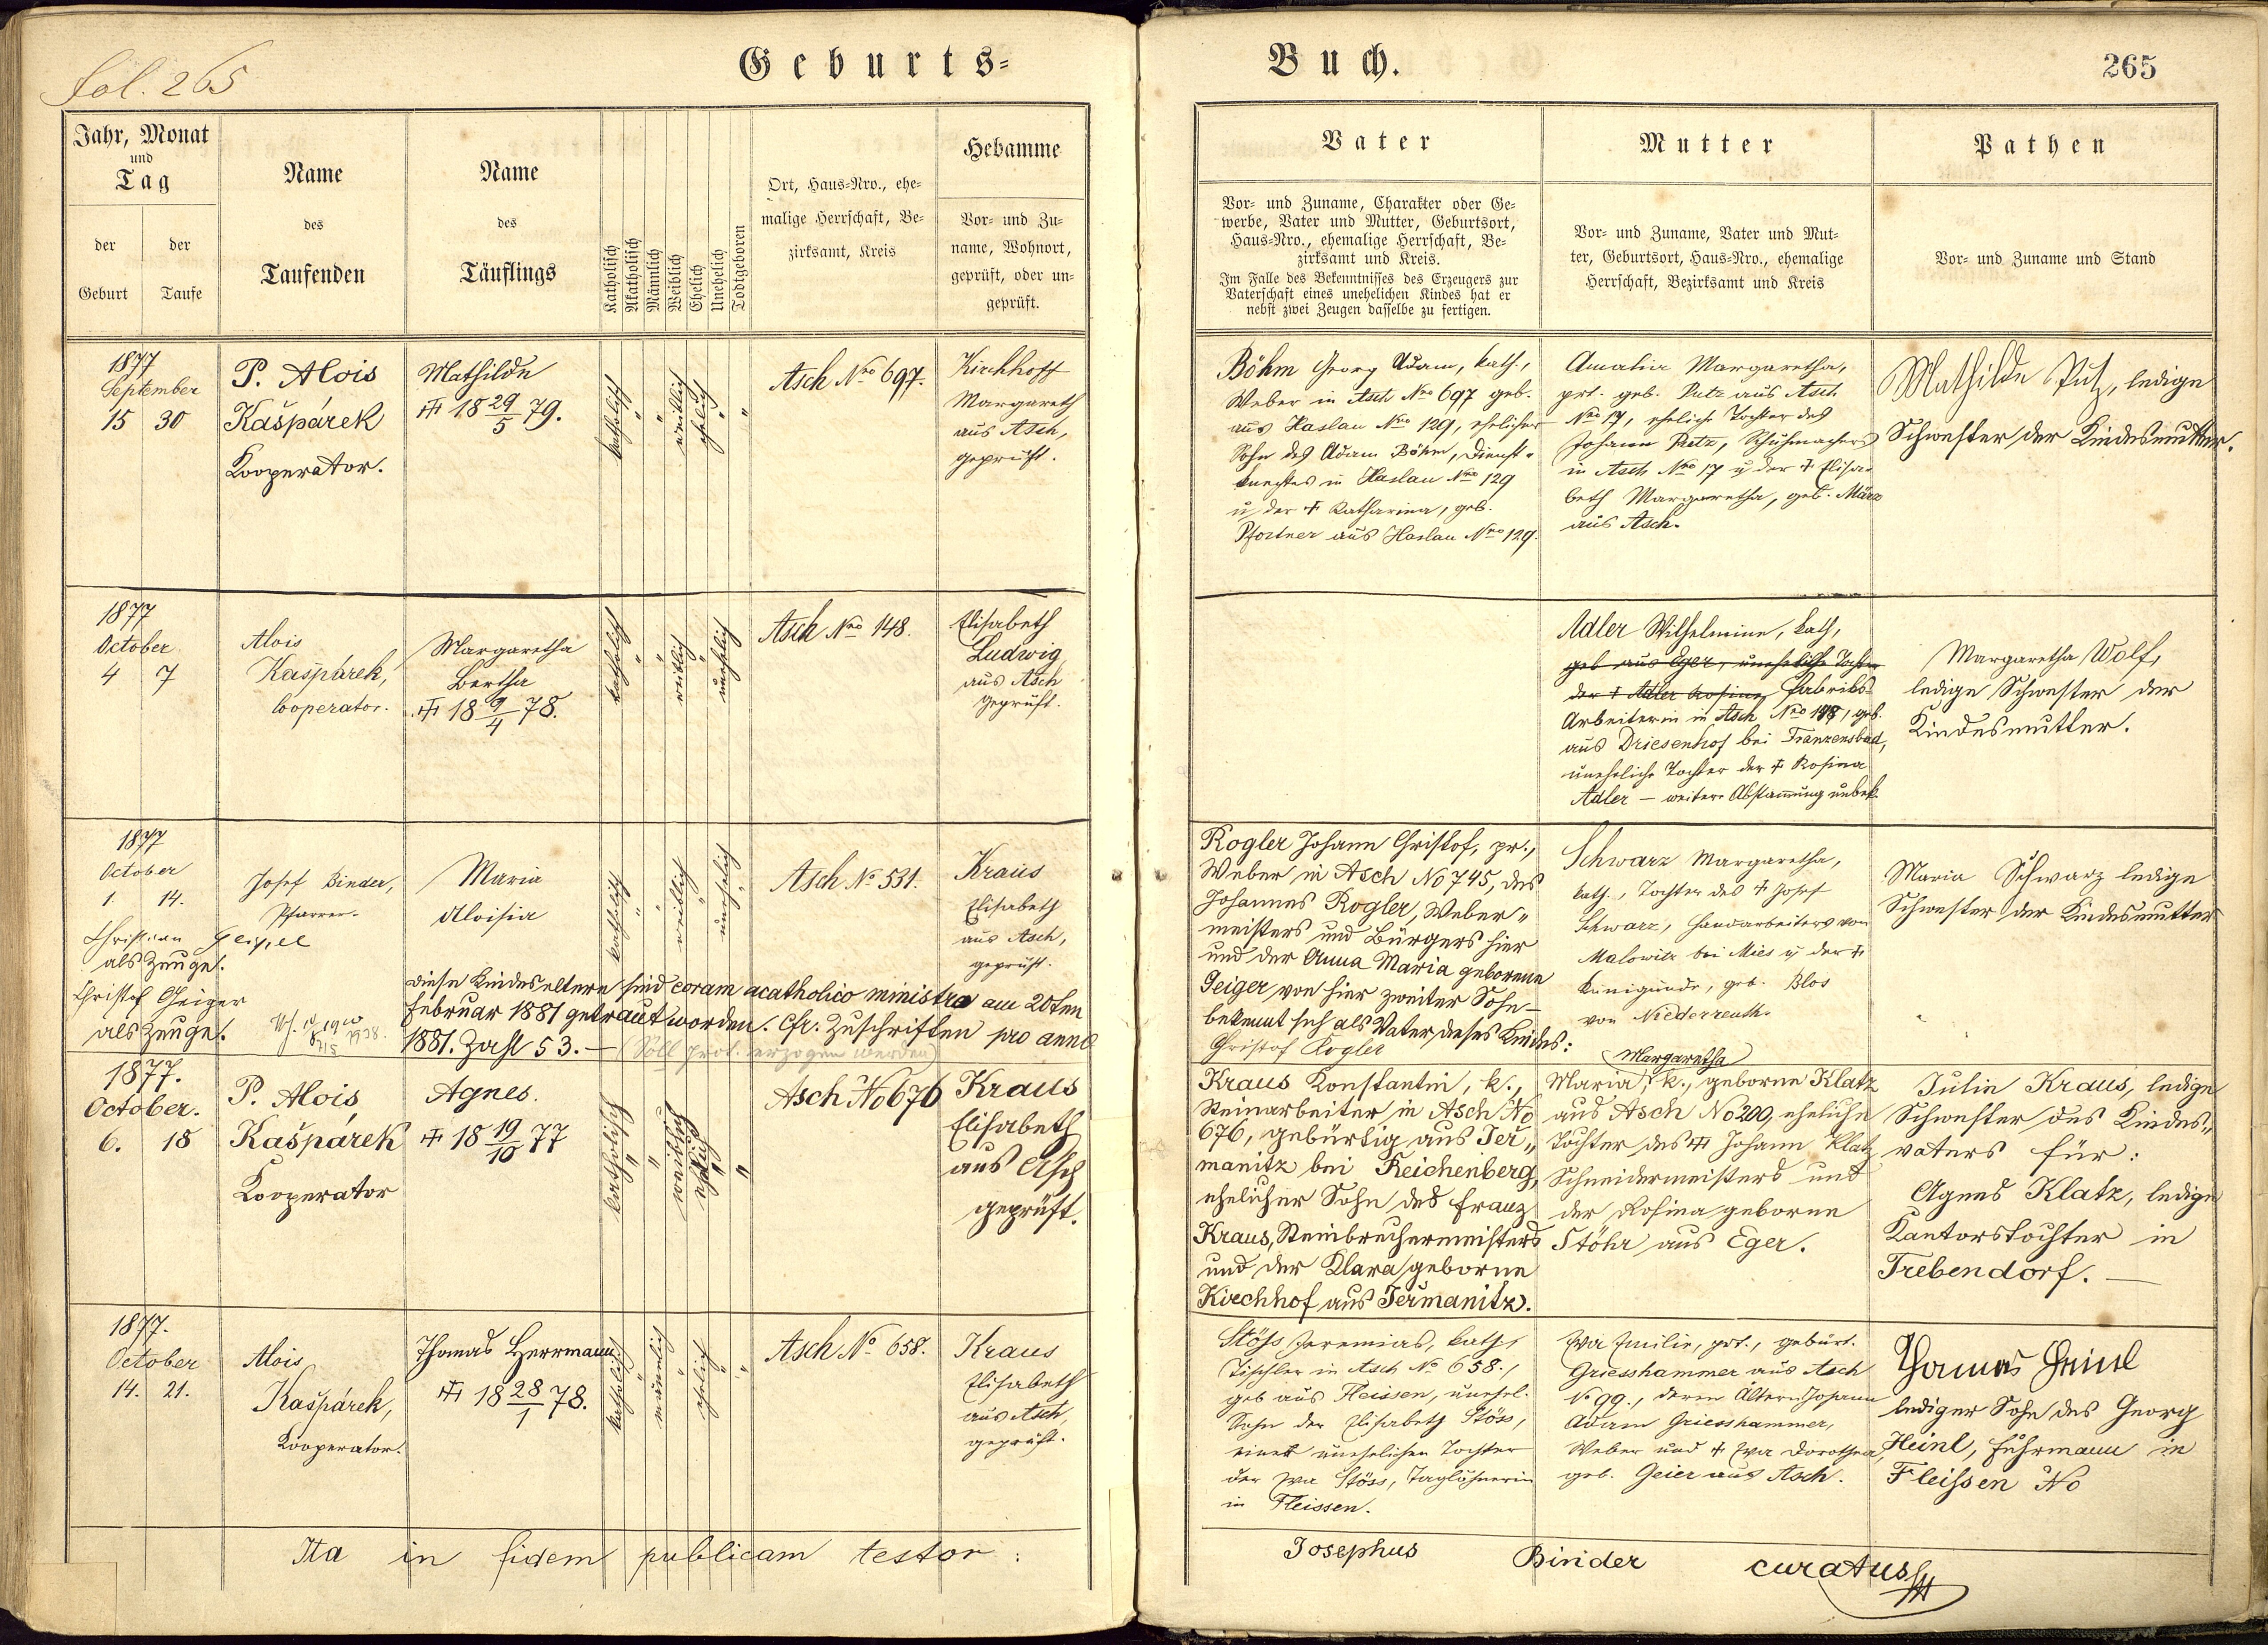 fol. 265
Geburts-
Buch.
265
Jahr, Monat
und
Tag
der
Geburt
der
Taufe
Name
des
Taufenden
Name
des
Täuflings
Katholisch
Akatholisch
Männlich
Weiblich
Ehelich
Unehelich
Todtgeboren
Ort, Haus-Nro., ehe-
malige Herrschaft, Be-
zirksamt, Kreis
Hebamme
Vor- und Zu-
name, Wohnort,
geprüft, oder un-
geprüft.
Vater
Vor- und Zuname, Charakter oder Ge-
werbe, Vater und Mutter, Geburtsort,
Haus-Nro., ehemalige Herrschaft, Be-
zirksamt und Kreis.
Im Falle des Bekenntnisses des Erzeugers zur
Vaterschaft eines unehelichen Kindes hat er
nebst zwei Zeugen dasselbe zu fertigen.
Mutter
Vor- und Zuname, Vater und Mut-
ter, Geburtsort, Haus-Nro., ehemalige
Herrschaft, Bezirksamt und Kreis
Pathen
Vor- und Zuname und Stand
1877
September
15 30
P. Alois
Kašpárek
Kooperator.
Mathilde
18 29/5 79.
katholisch
"
"
weiblich
ehelich
"
"
Asch Nro 697.
Kirchhoff
Margareth
aus Asch,
geprüft.
Böhm Georg Adam, kath.,
Weber in Asch Nro 697 geb.
aus Haslau Nro 129, ehelicher
Sohn des Adam Böhm, Dienst-
knechtes in Haslau Nro 129
u der † Katharina, geb.
Pfortner aus Haslau Nro 129.
Amalia Margaretha,
prt. geb. Putz aus Asch
Nro 17, eheliche Tochter des
Johann Putz, Schuhmachers
in Asch Nro 17 u der † Elisa-
beth Margaretha, geb. März
aus Asch.
Mathilde Putz, ledige
Schwester der Kindesmutter.
1877
October
4 7
Alois
Kašpárek,
Cooperator.
Margaretha
Bertha
18 9/4 78.
katholisch
"
"
weiblich
"
unehelich
Asch Nro 148.
Elisabeth
Ludwig
aus Asch
geprüft.
Adler Wilhelmine, kath,
geb aus Eger, uneheliche Tochter
der † Adler Rosina, Fabriks-
Arbeiterin in Asch Nro 148, geb.
aus Driesenhof bei Franzensbad,
uneheliche Tochter der † Rosina
Adler – weitere Abstammung unbek.
Margaretha Wolf,
ledige Schwester der
Kindesmutter.
1877
October
1. 14.
Josef Binder,
Pfarrer.
Maria
Aloisia
katholisch
"
"
weiblich
"
unehelich
"
Asch No 531.
Kraus
Elisabeth
aus Asch,
geprüft.
Rogler Johann Christof, pr.,
Weber in Asch No 745, des
Johannes Rogler, Weber-
meisters und Bürgers hier
und der Anna Maria geborene
Geiger von hier zweiter Sohn –
bekennt sich als Vater dieses Kindes:
Christof Rogler
Schwarz Margaretha,
kath., Tochter des † Josef
Schwarz, Handarbeiters von
Malowitz bei Mies u der †
Kunigunde, geb. Blos
von Niederreuth.
Maria Schwarz ledige
Schwester der Kindesmutter
Christian Geipel
als Zeuge.
Christof Geiger
als Zeuge.
diese Kindeseltern sind coram acatholico ministro am 20ten
Februar 1881 getraut worden. Cfr. Zuschriften pro anno
1881. Zahl 53. – (Soll prot. erzogen werden)
1877.
October.
6. 18
P. Alois
Kašpárek
Kooperator
Agnes.
18 19/10 77
katholisch
"
"
weiblich
ehelich
"
"
Asch No 676
Kraus
Elisabeth
aus Asch
geprüft.
Kraus Konstantin, k.,
Steinarbeiter in Asch No
676, gebürtig aus Jer-
manitz bei Reichenberg,
ehelicher Sohn des Franz
Kraus, Steinbruchermeisters
und der Klara geborne
Kirchhof aus Jermanitz.
Margaretha
Maria, k., geborne Klatz
aus Asch No 200, eheliche
Tochter des † Johann Klatz
Schneidermeisters und
der Rosina geborne
Stöhr aus Eger.
Julie Kraus, ledige
Schwester des Kindes-
vaters für:
Agnes Klatz, ledige
Kantorstochter in
Trebendorf. –
1877.
October
14. 21.
Alois
Kašpárek,
Kooperator.
Thomas Herrmann
18 28/1 78.
katholisch
"
männlich
"
ehelich
"
"
Asch No 658.
Kraus
Elisabeth
aus Asch,
geprüft.
Stöss Jeremias, kath,
Tischler in Asch No 658.,
geb aus Fleissen, unehel.
Sohn der Elisabeth Stöss,
einer unehelichen Tochter
der Eva Stöss, Taglöhnerin
in Fleissen.
Eva Emilie, prt., gebürt.
Griesshammer aus Asch
No 99., deren Ältern Johann
Adam Griesshammer,
Weber und † Eva Dorothea,
geb. Geier aus Asch.
Thomas Heinl
lediger Sohn des Georg
Heinl, Fuhrmann in
Fleissen No
Ita in fidem publicam testor:
Josephus Binder curatus